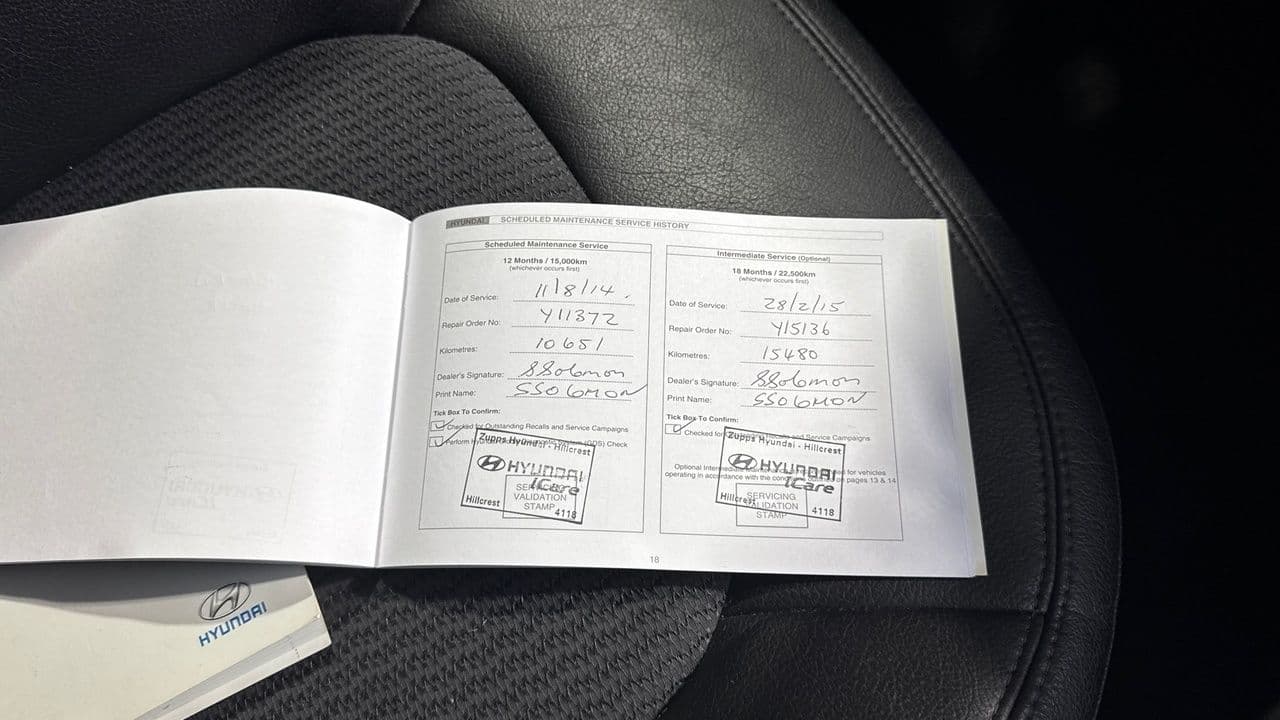 HYUNDAI SCHEDULED MAINTENANCE SERVICE HISTORY
Scheduled Maintenance Service
12 Months / 15,000km
(whichever occurs first)
Date of Service: 11/8/14
Repair Order No: Y11372
Kilometres: 10651
Dealer's Signature: SSolomon
Print Name: SSOLOMON
Tick Box To Confirm:
Checked for Outstanding Recalls and Service Campaigns
Perform (GDS) Check
Zupps Hyundai - Hillcrest
HYUNDAI
iCare
SERVICING
VALIDATION
STAMP
Hillcrest 4118
Intermediate Service (Optional)
18 Months / 22,500km
(whichever occurs first)
Date of Service: 28/2/15
Repair Order No: Y15136
Kilometres: 15480
Dealer's Signature: SSolomon
Print Name: SSOLOMON
Tick Box To Confirm:
Checked for Recalls and Service Campaigns
Optional Intermediate for vehicles
operating in accordance with the conditions on pages 13 & 14
Zupps Hyundai - Hillcrest
HYUNDAI
iCare
SERVICING
VALIDATION
STAMP
Hillcrest 4118
18
HYUNDAI